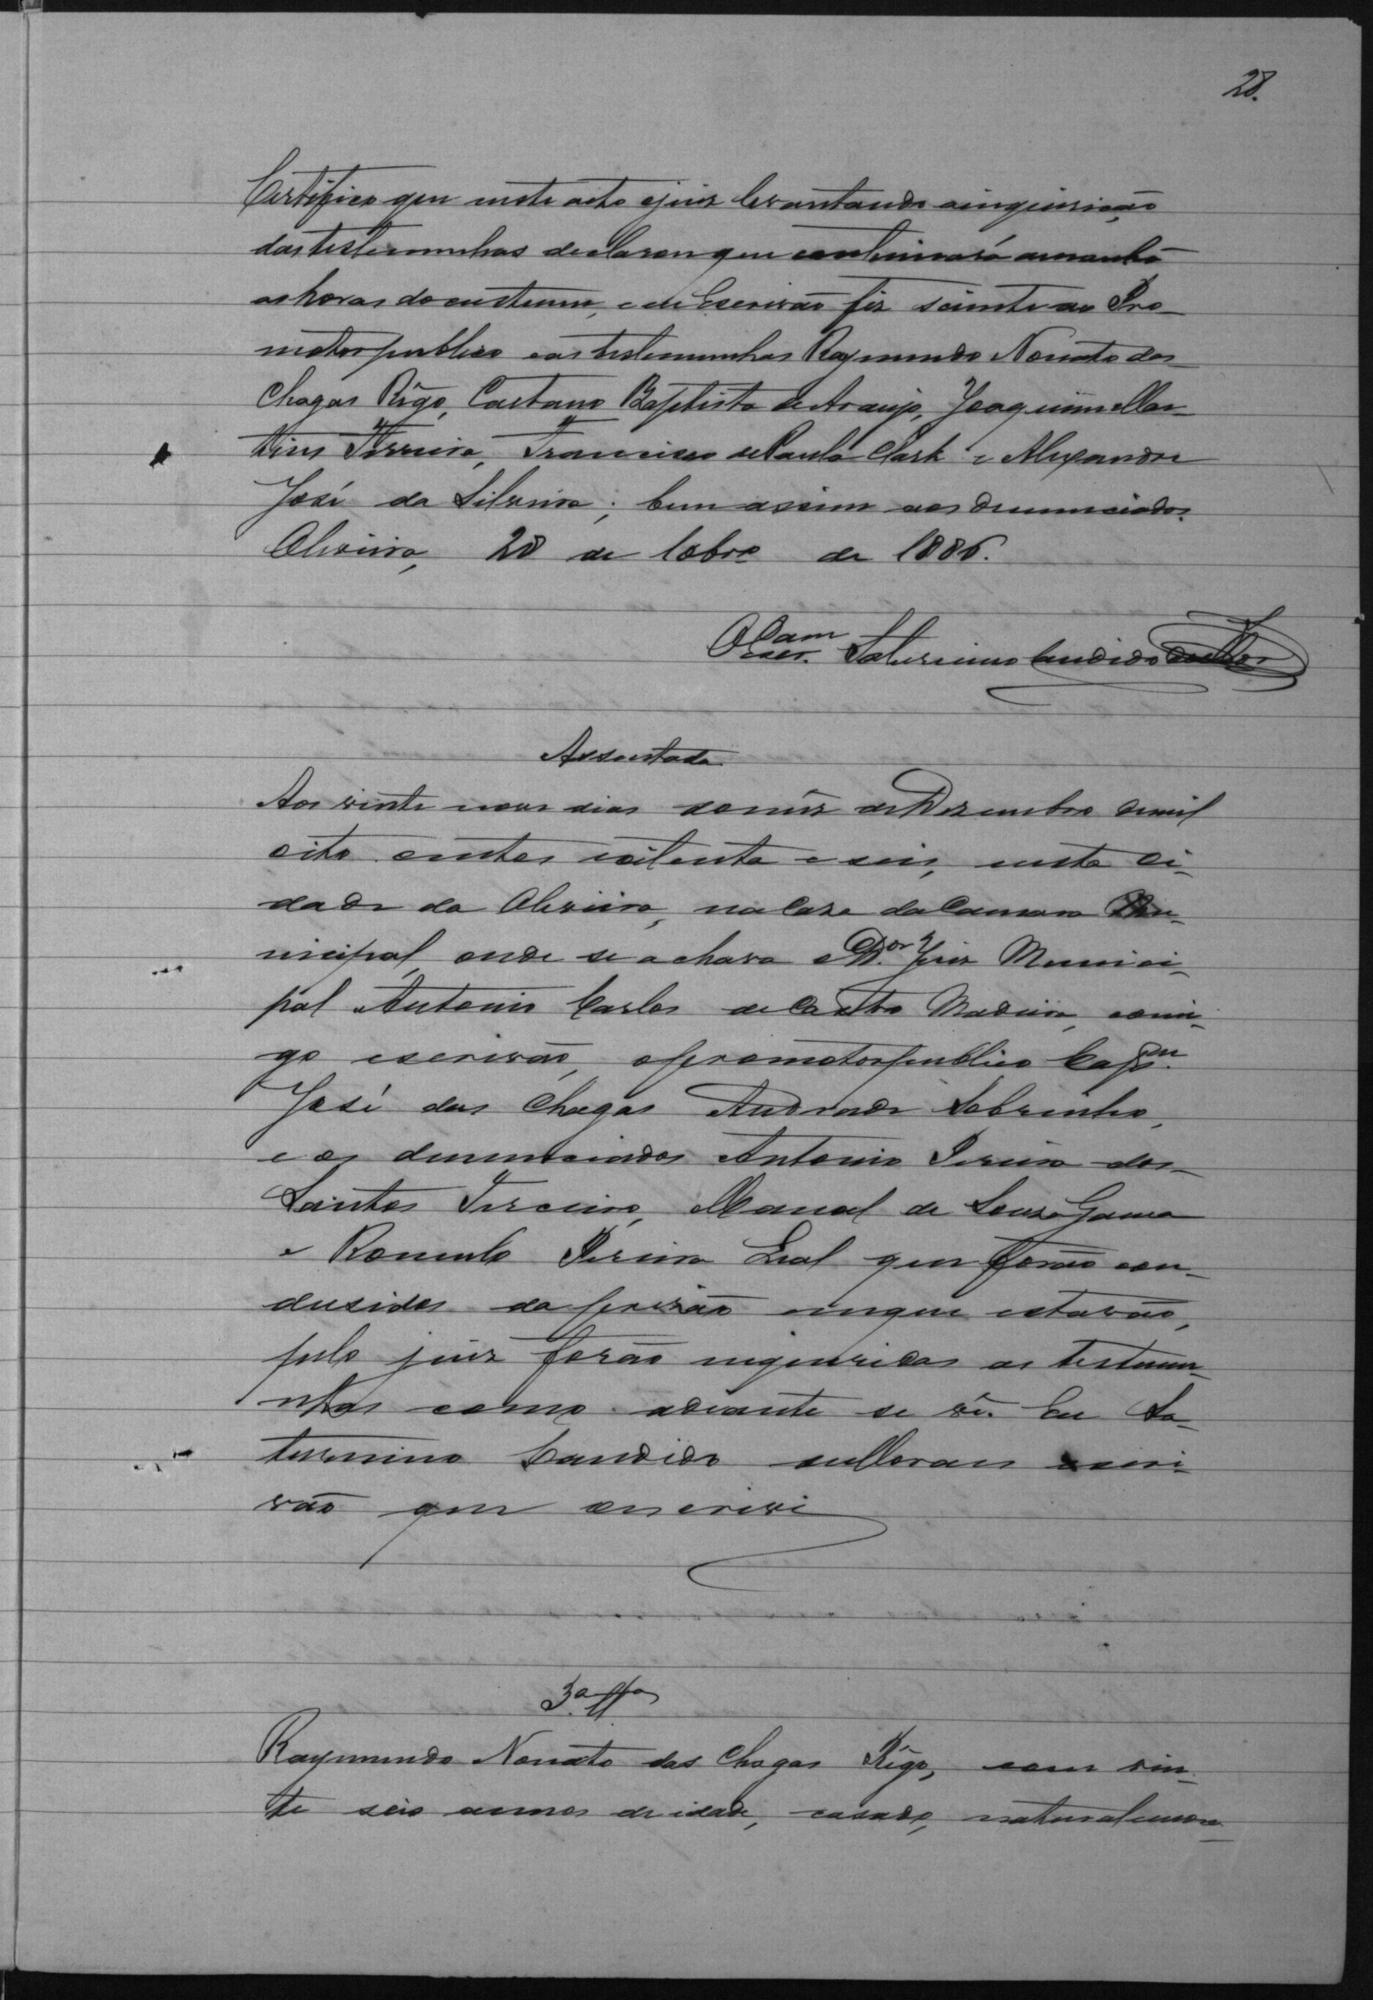 28.
Certifico que neste acto o juiz levantando a inquirição
das testemunhas declarou que continuará amanhã
as horas do custume, e eu Escrivão fiz sciente ao Pro-
motor publico e as testemunhas Raymundo Nonato das
Chagas Rêgo, Caetano Baptista de Araujo, Joaquim Mar-
tins Ferreira, Francisco de Paula Clark e Alexandre
José da Silveira; bem assim aos denunciados.
Oliveira, 28 de 10bro de 1886.
O Escr.am Saturnino Candido de Moraes
Assentada
Aos vinte nove dias do mêz de Dezembro de mil
oito centos oitenta e seis, nesta ci-
dade da Oliveira, na Casa da Camara Mu-
nicipal, onde se achava o D.or Juiz Munici-
pal Antonio Carlos de Castro Madeira, comi-
go escrivão, o promotor publico Cap.m
José das Chagas Andrade Sobrinho,
e os denunciados Antonio Pereira dos
Santos Terceiro, Manoel de Souza Gama
e Romulo Pereira Leal que forão con-
dusidos da prizão em que estavão,
pelo juiz forão inqueridas as testemu-
nhas como adeante se vê. Eu Sa-
turnino Candido de Moraes escri-
vão que escrevi
3.a tta
Raymundo Nonato das Chagas Rêgo, com vin-
te seis annos de idade, casado, natural e mora-